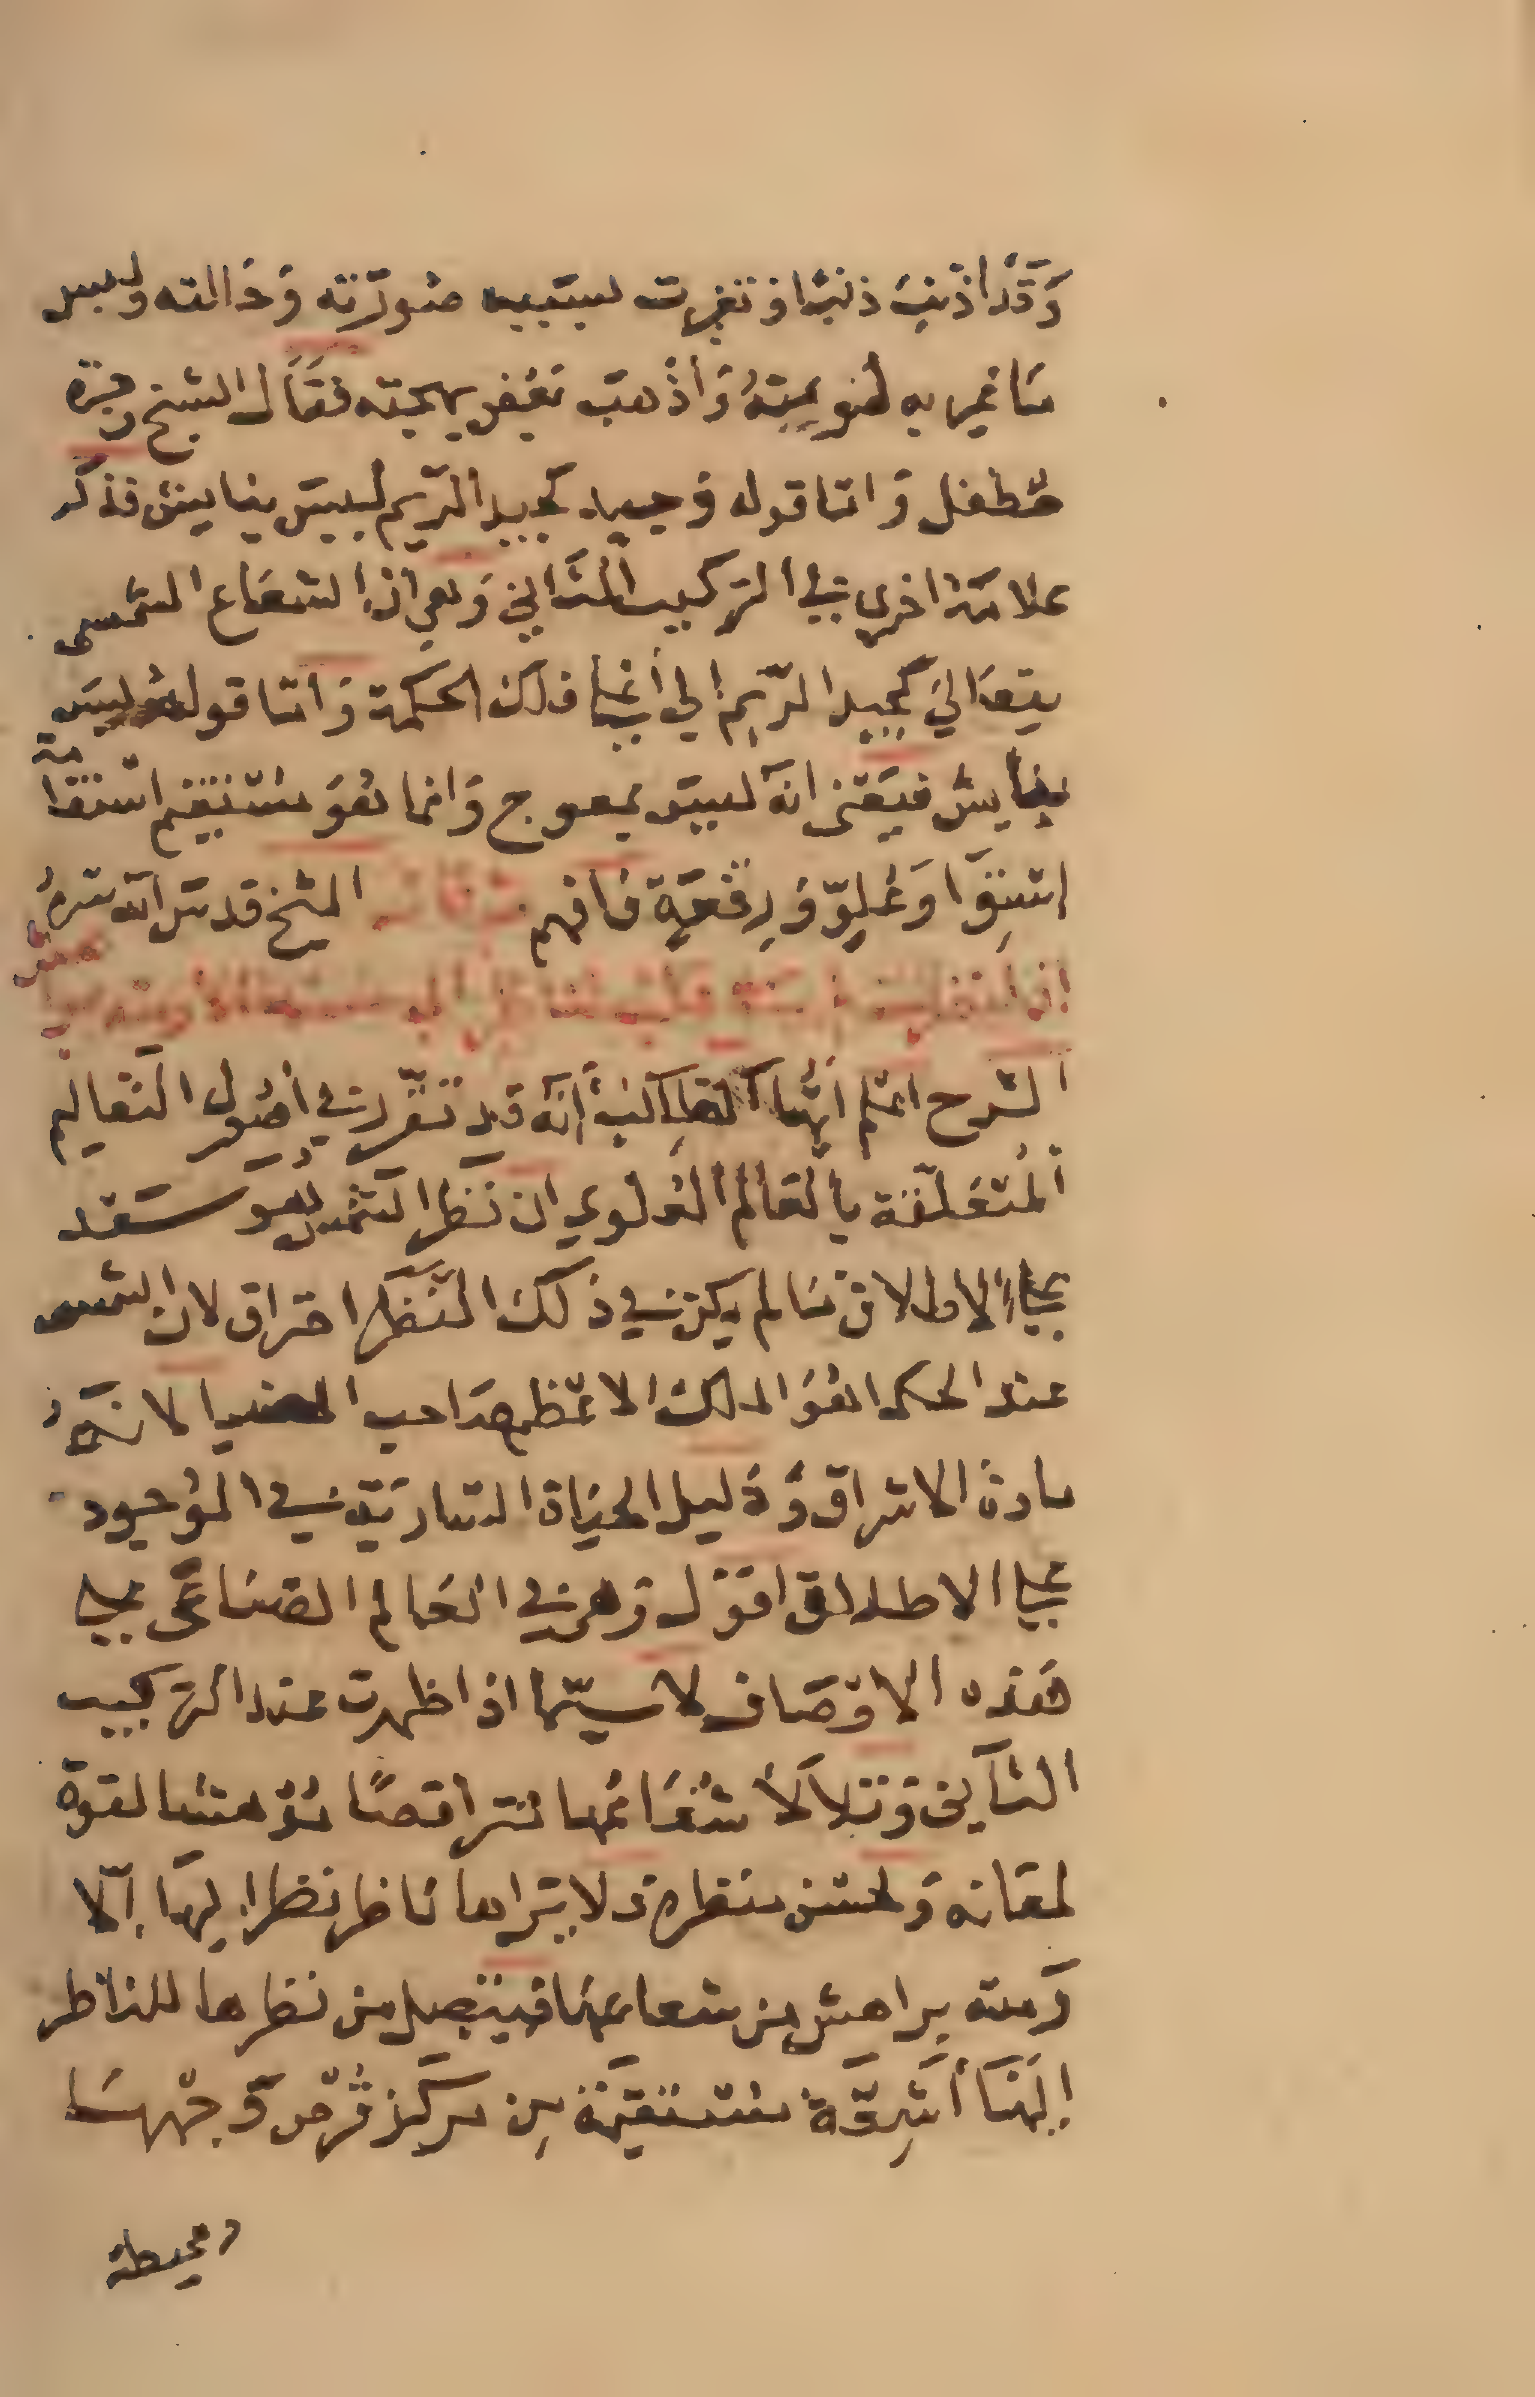 وَقَدْ اَذْنَبَ ذنبًا وتغيرت بسببه صُورَته وَحَالته ولبس
مَا غير به لغو وَأذْهَبَ بَعْض بهجته فقَالَ الشيخ وجرة
مُطفل وَامّا قوله وَجيد كجيد الرّيم ليسَ بفايش فذكر
علامَة اخرى في التركيب الثَّاني وَهي ان الشعَاع الشمسي
يتعَالىَ كجيد الرّيم الى أعْلَا فلك الحكمة وَامّا قوله ليسَ
بفَايش فيَعْني انهَ ليسَ بمعوج وَانما هُوَ مسْتقيم اسْتقَامة
اسْتِوَا وَعُلوّ وَرِفْعَةٍ فَافهم قال الشيخ قدسَ الله سرهُ
الشرح اعلم أيُّهَا الطَالبُ أنَّهَ قد تقَّرر في أصُول التعَاليم
المُتعَلّقة بالعَالم العُلوي ان نَظَر الشمس هو سَعْد
علىَ الاطلاق مَا لم يكن في ذَلكَ النَّظَر احتراق لان الشمس
عند الحكما هُوَ الملك الاعْظم صَاحب الضيا لانهَُ
مادة الاشراق وَدَليل الحيَاة السَاريَة في الموُجود
على الاطلاق اقوَل وَهي في العَالم الصّنَاعَى على
هَذه الاوْصَاف لا سيّما اذا ظهرت عند التركيب
الثَّاني وَتلالَأ شُعَاعُها متراقصًا مُوْهشا لقوة
لمعَانه وَلحسْن منظره وَلا يَرَاها نَاظر نظر اليهَا إلّا
رَمته براهش من شعاعهَا فيتصل من نظرها للناظر
إليهَا أشِعَّة مُسْتقيمَة مِن مركز قرْص وَجْههَا
ومحيطة